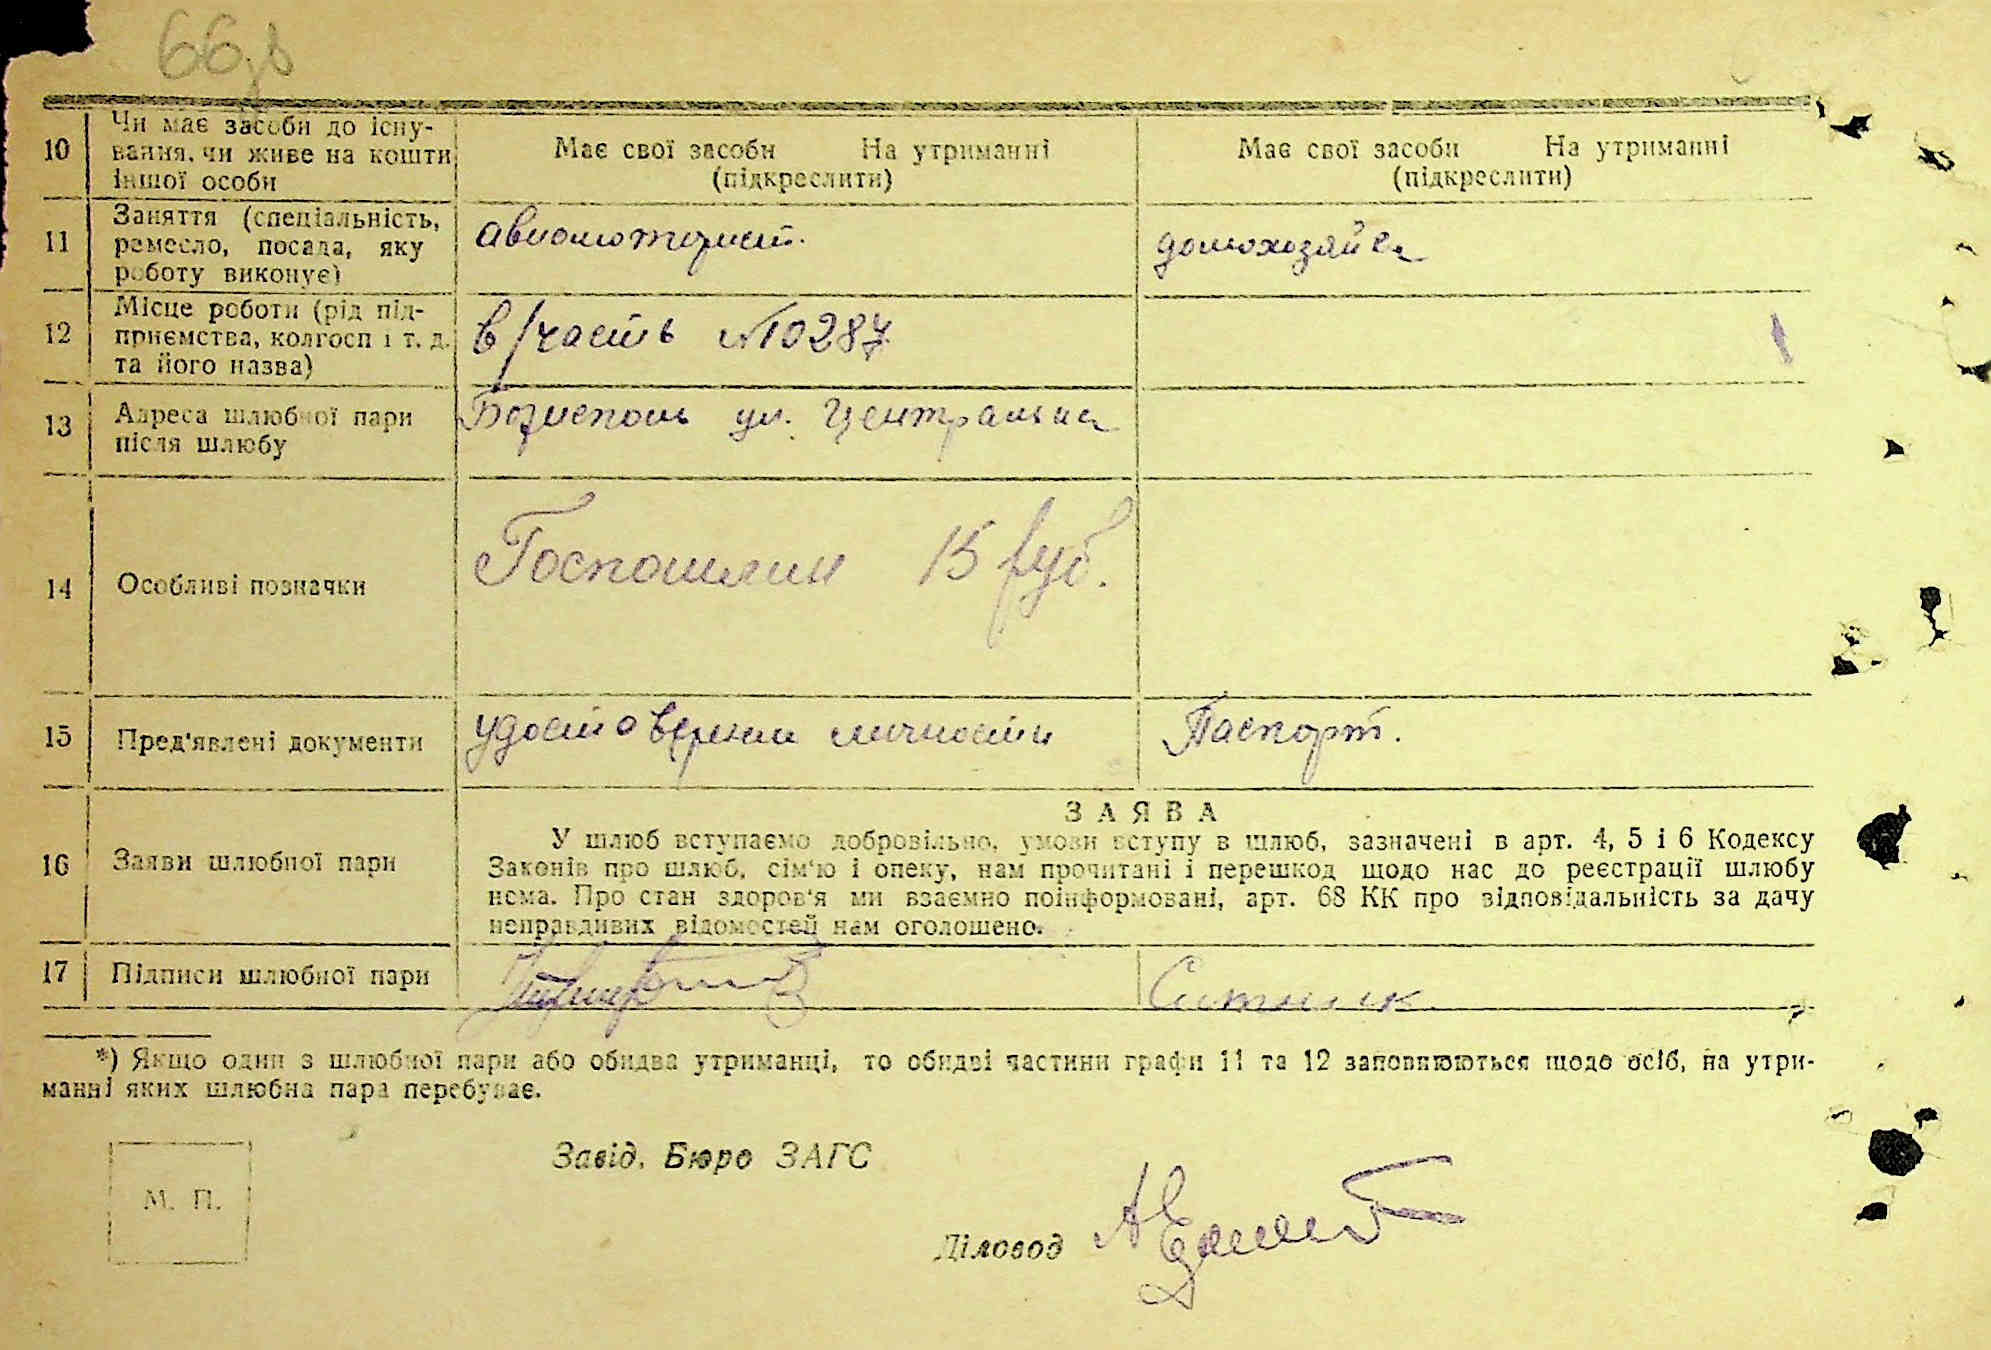 66
10 Чи має засоби до існу-
вання, чи живе на кошти
іншої особи
Має свої засоби На утриманні
(підкреслити)
Має свої засоби На утриманні
(підкреслити)
11 Заняття (спеціальність,
ремесло, посада, яку
роботу виконує)
авиомоторист.
домохозяйка
12 Місце роботи (рід під-
приємства, колгосп і т. д.
та його назва)
в/часть №10287
13 Адреса шлюбної пари
після шлюбу
Борисполь ул. Центральна
14 Особливі позначки
Госпошлин 15 руб.
15 Пред'явлені документи
удостоверении личности
Паспорт.
16 Заяви шлюбної пари
ЗАЯВА
У шлюб вступаємо добровільно, умови вступу в шлюб, зазначені в арт. 4, 5 і 6 Кодексу
Законів про шлюб, сім'ю і опеку, нам прочитані і перешкод щодо нас до реєстрації шлюбу
нема. Про стан здоров'я ми взаємно поінформовані, арт. 68 КК про відповідальність за дачу
неправдивих відомостей нам оголошено.
17 Підписи шлюбної пари
Ситник
*) Якщо один з шлюбної пари або обидва утриманці, то обидві частини графи 11 та 12 заповнюються щодо осіб, на утри-
манні яких шлюбна пара перебуває.
Завід. Бюро ЗАГС
М. П.
Діловод